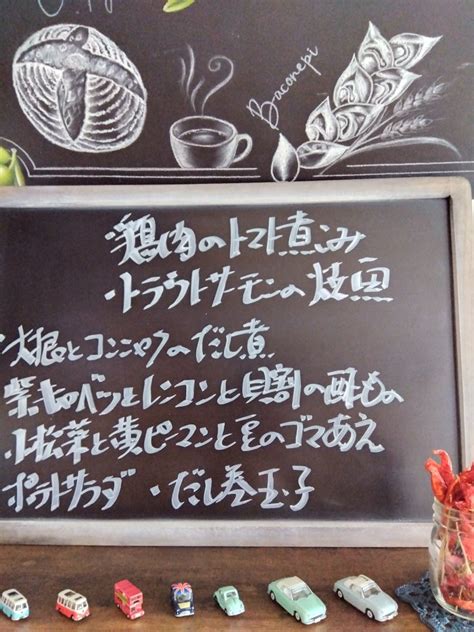 Baconepi
・鶏肉のトマト煮み
・トラウトサーモンの焼魚
・大根とコンニャクのだし煮
紫キャベツとレンコンと貝割の酢もの
小松菜と黄ピーマンと豆のゴマあえ
ポテトサラダ ・だし巻玉子